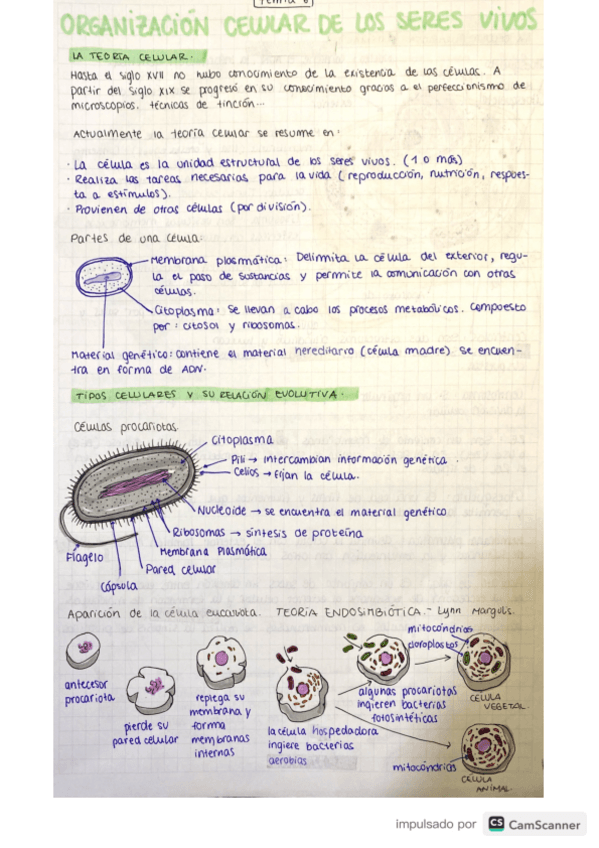 ORGANIZACIÓN CELULAR DE LOS SERES VIVOS
LA TEORÍA CELULAR.
Hasta el siglo XVII no hubo conocimiento de la existencia de las células. A
partir del siglo XIX se progresó en su conocimiento gracias a el perfeccionismo de
microscopios, técnicas de tinción...
Actualmente la teoría celular se resume en:
· La célula es la unidad estructural de los seres vivos. (1 o más)
· Realiza las tareas necesarias para la vida (reproducción, nutrición, respues-
ta a estímulos).
· Provienen de otras células (por división).
Partes de una célula:
Membrana plasmática: Delimita la célula del exterior, regu-
la el paso de sustancias y permite la comunicación con otras
células.
Citoplasma: se llevan a cabo los procesos metabólicos. Compuesto
por: citosol y ribosomas.
Material genético: contiene el material hereditario (célula madre) se encuen-
tra en forma de ADN.
TIPOS CELULARES Y SU RELACIÓN EVOLUTIVA.
Células procariotas
Citoplasma
Pili → intercambian información genética.
Celios → fijan la célula.
Nucleoide → se encuentra el material genético
Ribosomas → síntesis de proteína
Membrana Plasmática
Pared celular
Flagelo
Cápsula
Aparición de la célula eucariota. TEORÍA ENDOSIMBIÓTICA.- Lynn Margulis.
mitocóndrias
cloroplastos
antecesor
procariota
pierde su
pared celular
repliega su
membrana y
forma
membranas
internas
la célula hospedadora
ingiere bacterias
aerobias
algunas procariotas
ingieren bacterias
fotosintéticas
CÉLULA
VEGETAL.
mitocóndrias
CÉLULA
ANIMAL.
impulsado por CS CamScanner